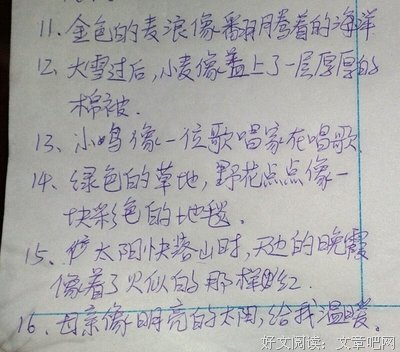 11、金色的麦浪像翻腾着的海洋
12、大雪过后,小麦像盖上了一层厚厚的
棉被.
13、小鸟像一位歌唱家在唱歌.
14、绿色的草地,野花点点像一
块彩色的地毯.
15、太阳快落山时,天边的晚霞
像着了火似的那样红.
16、母亲像明亮的太阳,给我温暖.
好文阅读:文章吧网